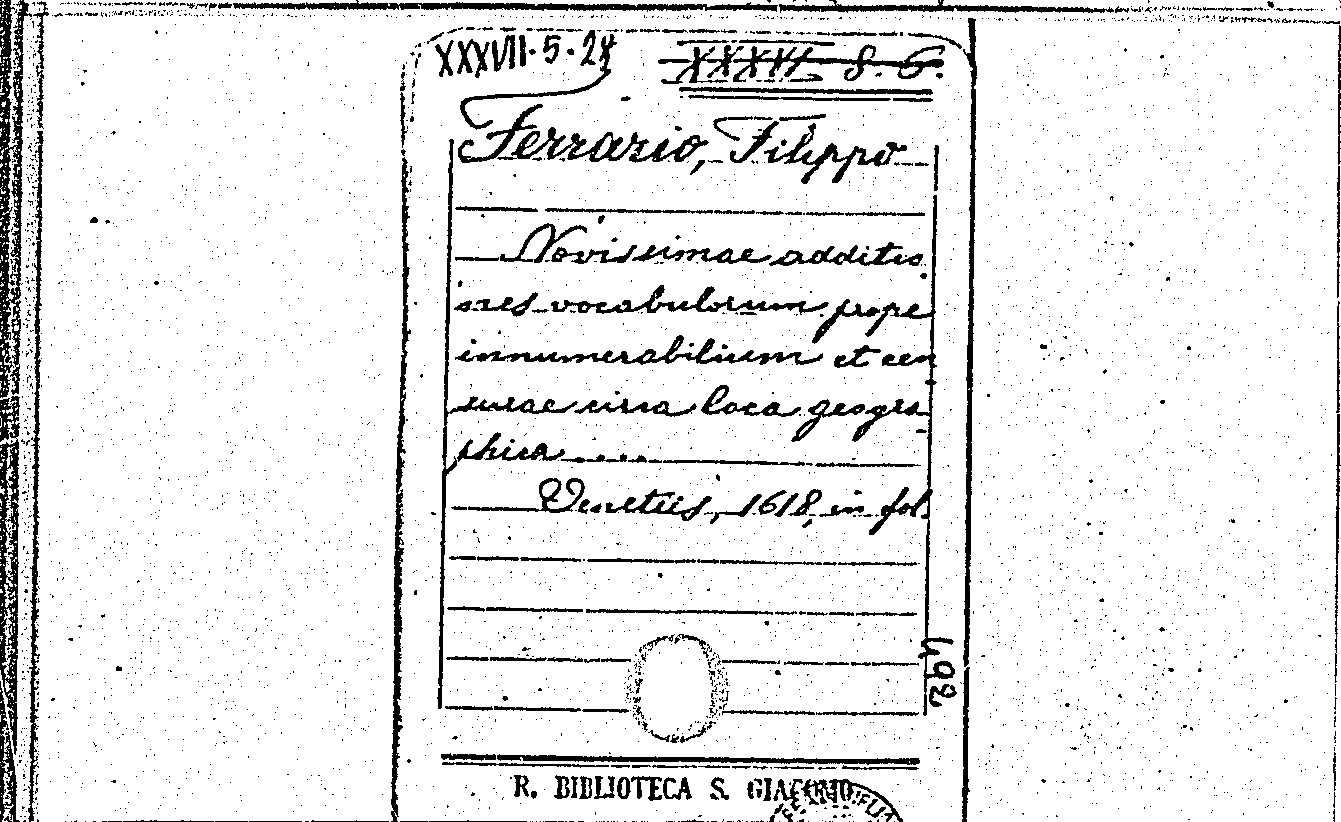 XXXVII. 5. 24
XXXVI 8. 6.
Ferrario, Filippo
Novissimae additio
nes vocabulorum prope
innumerabilium et cen
surae circa loca geogra
phica.....
Venetiis, 1618, in fol.
492
R. BIBLIOTECA S. GIACOMO